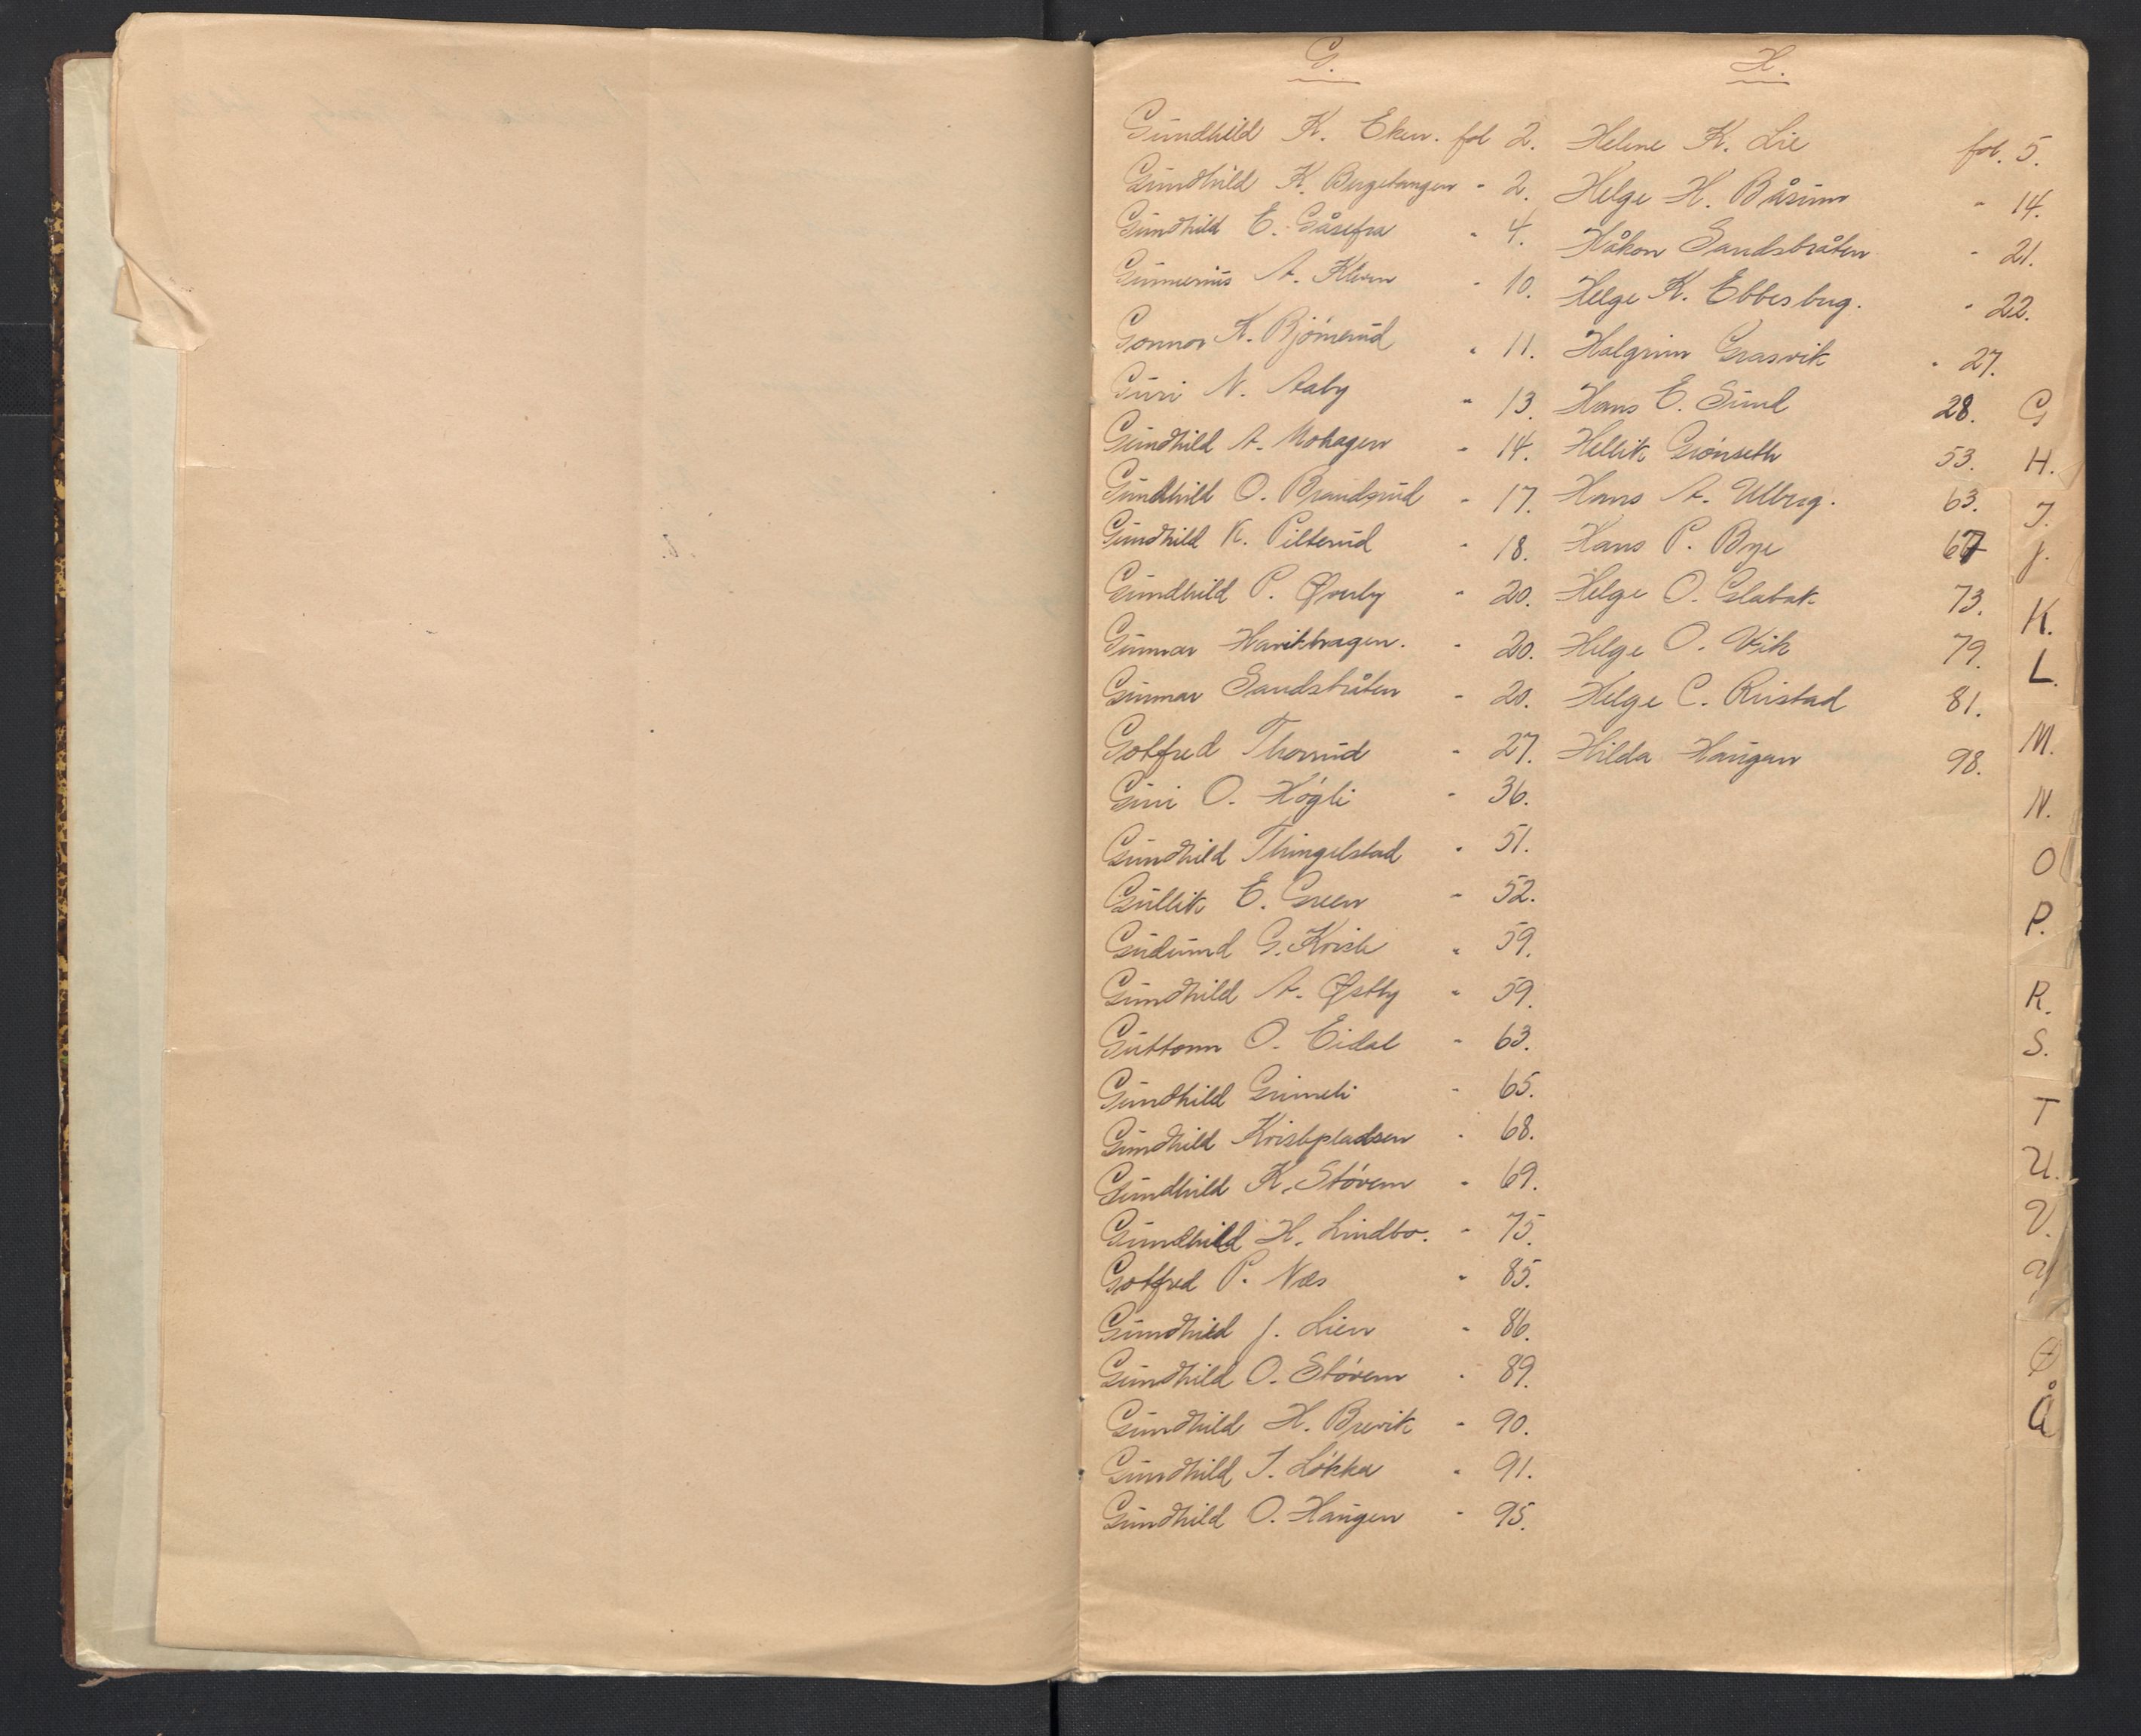 G.
Gundhild K. Eken. fol 2.
Gundhild K. Bergetangen " 2.
Gundhild E. Gåsefra " 4.
Gunnerius A. Kleven " 10.
Gonnor K. Bjömerud " 11.
Guri N. Aaby " 13.
Gundhild A. Mohagen " 14.
Gundhild O. Brandsrud " 17.
Gundhild K. Pilterud " 18.
Gundhild P. Øverby " 20.
Gunnar Haviktragen. " 20.
Gunnar Sandsbråten " 20.
Gotfred Thorrud " 27.
Guri O. Högli " 36.
Gundhild Thingelstad " 51.
Gullik E. Green " 52.
Gudmund G. Kvisle " 59.
Gundhild A. Østby " 59.
Guttorm O. Eidal " 63.
Gundhild Grimeli " 65.
Gundhild Kvislepladsen " 68.
Gundhild K. Stövern " 69.
Gundhild H. Lindbo. " 75.
Gotfred P. Næs " 85.
Gundhild J. Lien " 86.
Gundhild O. Stövern " 89.
Gundhild H. Brevik " 90.
Gundhild T. Lökka " 91.
Gundhild O. Haugen " 95.
H.
Helene K. Lie fol. 5.
Helge H. Båsum " 14.
Håkon Sandsbråten " 21.
Helge K. Ebbesberg. " 22.
Halgrim Grasvik " 27.
Hans E. Simle 28.
Hellik Grönseth 53.
Hans A. Ulberg. 63.
Hans P. Bye 67
Helge O. Glabak 73.
Helge O. Vik 79.
Helge C. Rustad 81.
Hilda Haugen 98.
G
H.
I.
J.
K.
L.
M.
N.
O
P.
R.
S.
T
U.
V.
Y
Ø
Å